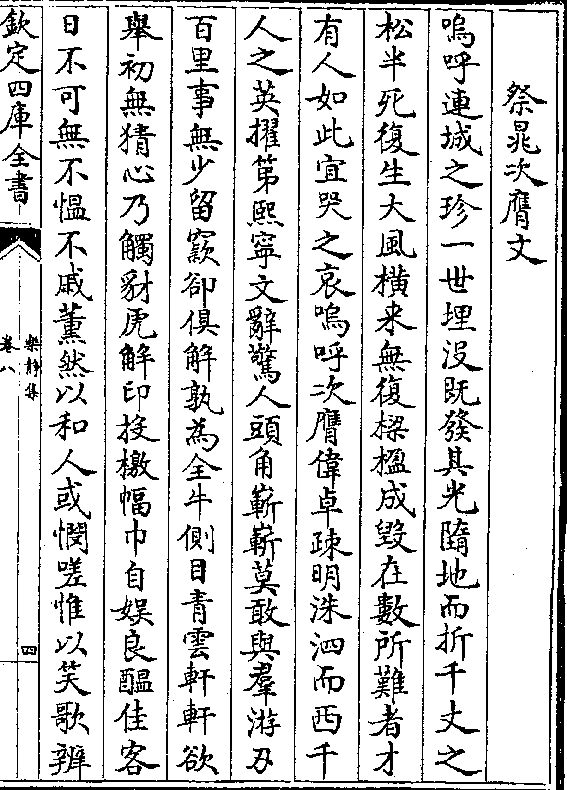 祭晁次膺文
嗚呼連城之珍一世埋没既發其光隨地而折千丈之
松半死復生大風橫来無復樑楹成毀在數所難者才
有人如此宜哭之哀嗚呼次膺偉卓疎明洙泗而西千
人之英擢第熙寧文辭驚人頭角嶄嶄莫敢與羣游刃
百里事無少留窾卻俱解孰為全牛側目青雲軒軒欲
舉初無猜心乃觸豺虎解印投檄幅巾自娛良醞佳客
日不可無不愠不戚薰然以和人或憫嗟惟以笑歌辨
欽定四庫全書
樂静集
卷八
四